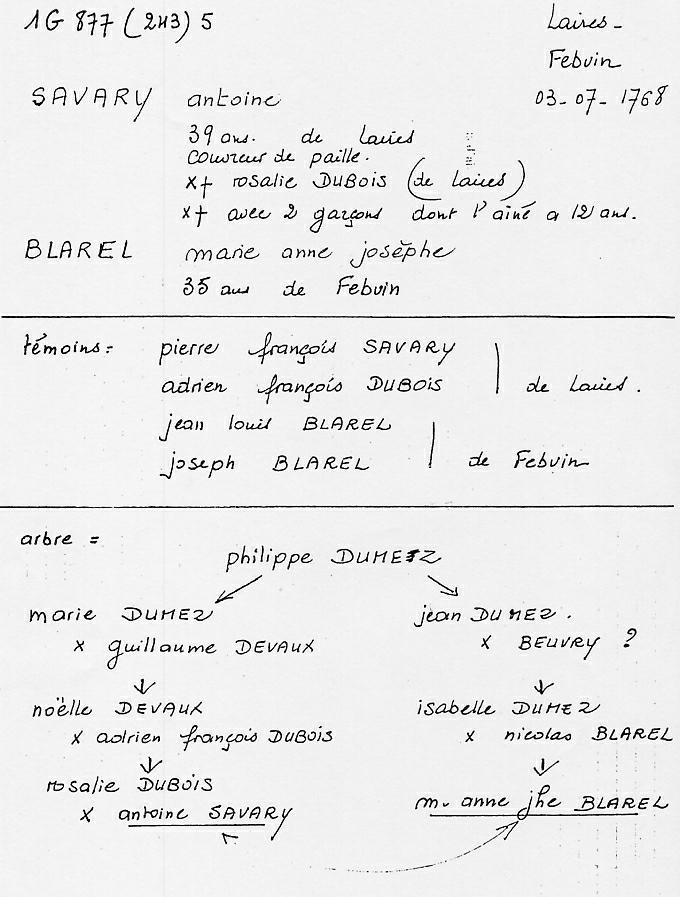 1G 877 (243) 5
Laires -
Febvin
03-07-1768
SAVARY antoine
39 ans. de Laires
couvreur de paille.
x+ rosalie DUBOIS (de Laires)
x+ avec 2 garçons dont l'aîné a 12 ans.
BLAREL marie anne josèphe
35 ans de Febvin
témoins = pierre françois SAVARY
adrien françois DUBOIS de Laires.
jean louis BLAREL
joseph BLAREL de Febvin
arbre =
philippe DUMEZ
marie DUMEZ
x guillaume DEVAUX
jean DUMEZ.
x BEUVRY ?
noëlle DEVAUX
x adrien françois DUBOIS
isabelle DUMEZ
x nicolas BLAREL
rosalie DUBOIS
x antoine SAVARY
m. anne jhe BLAREL